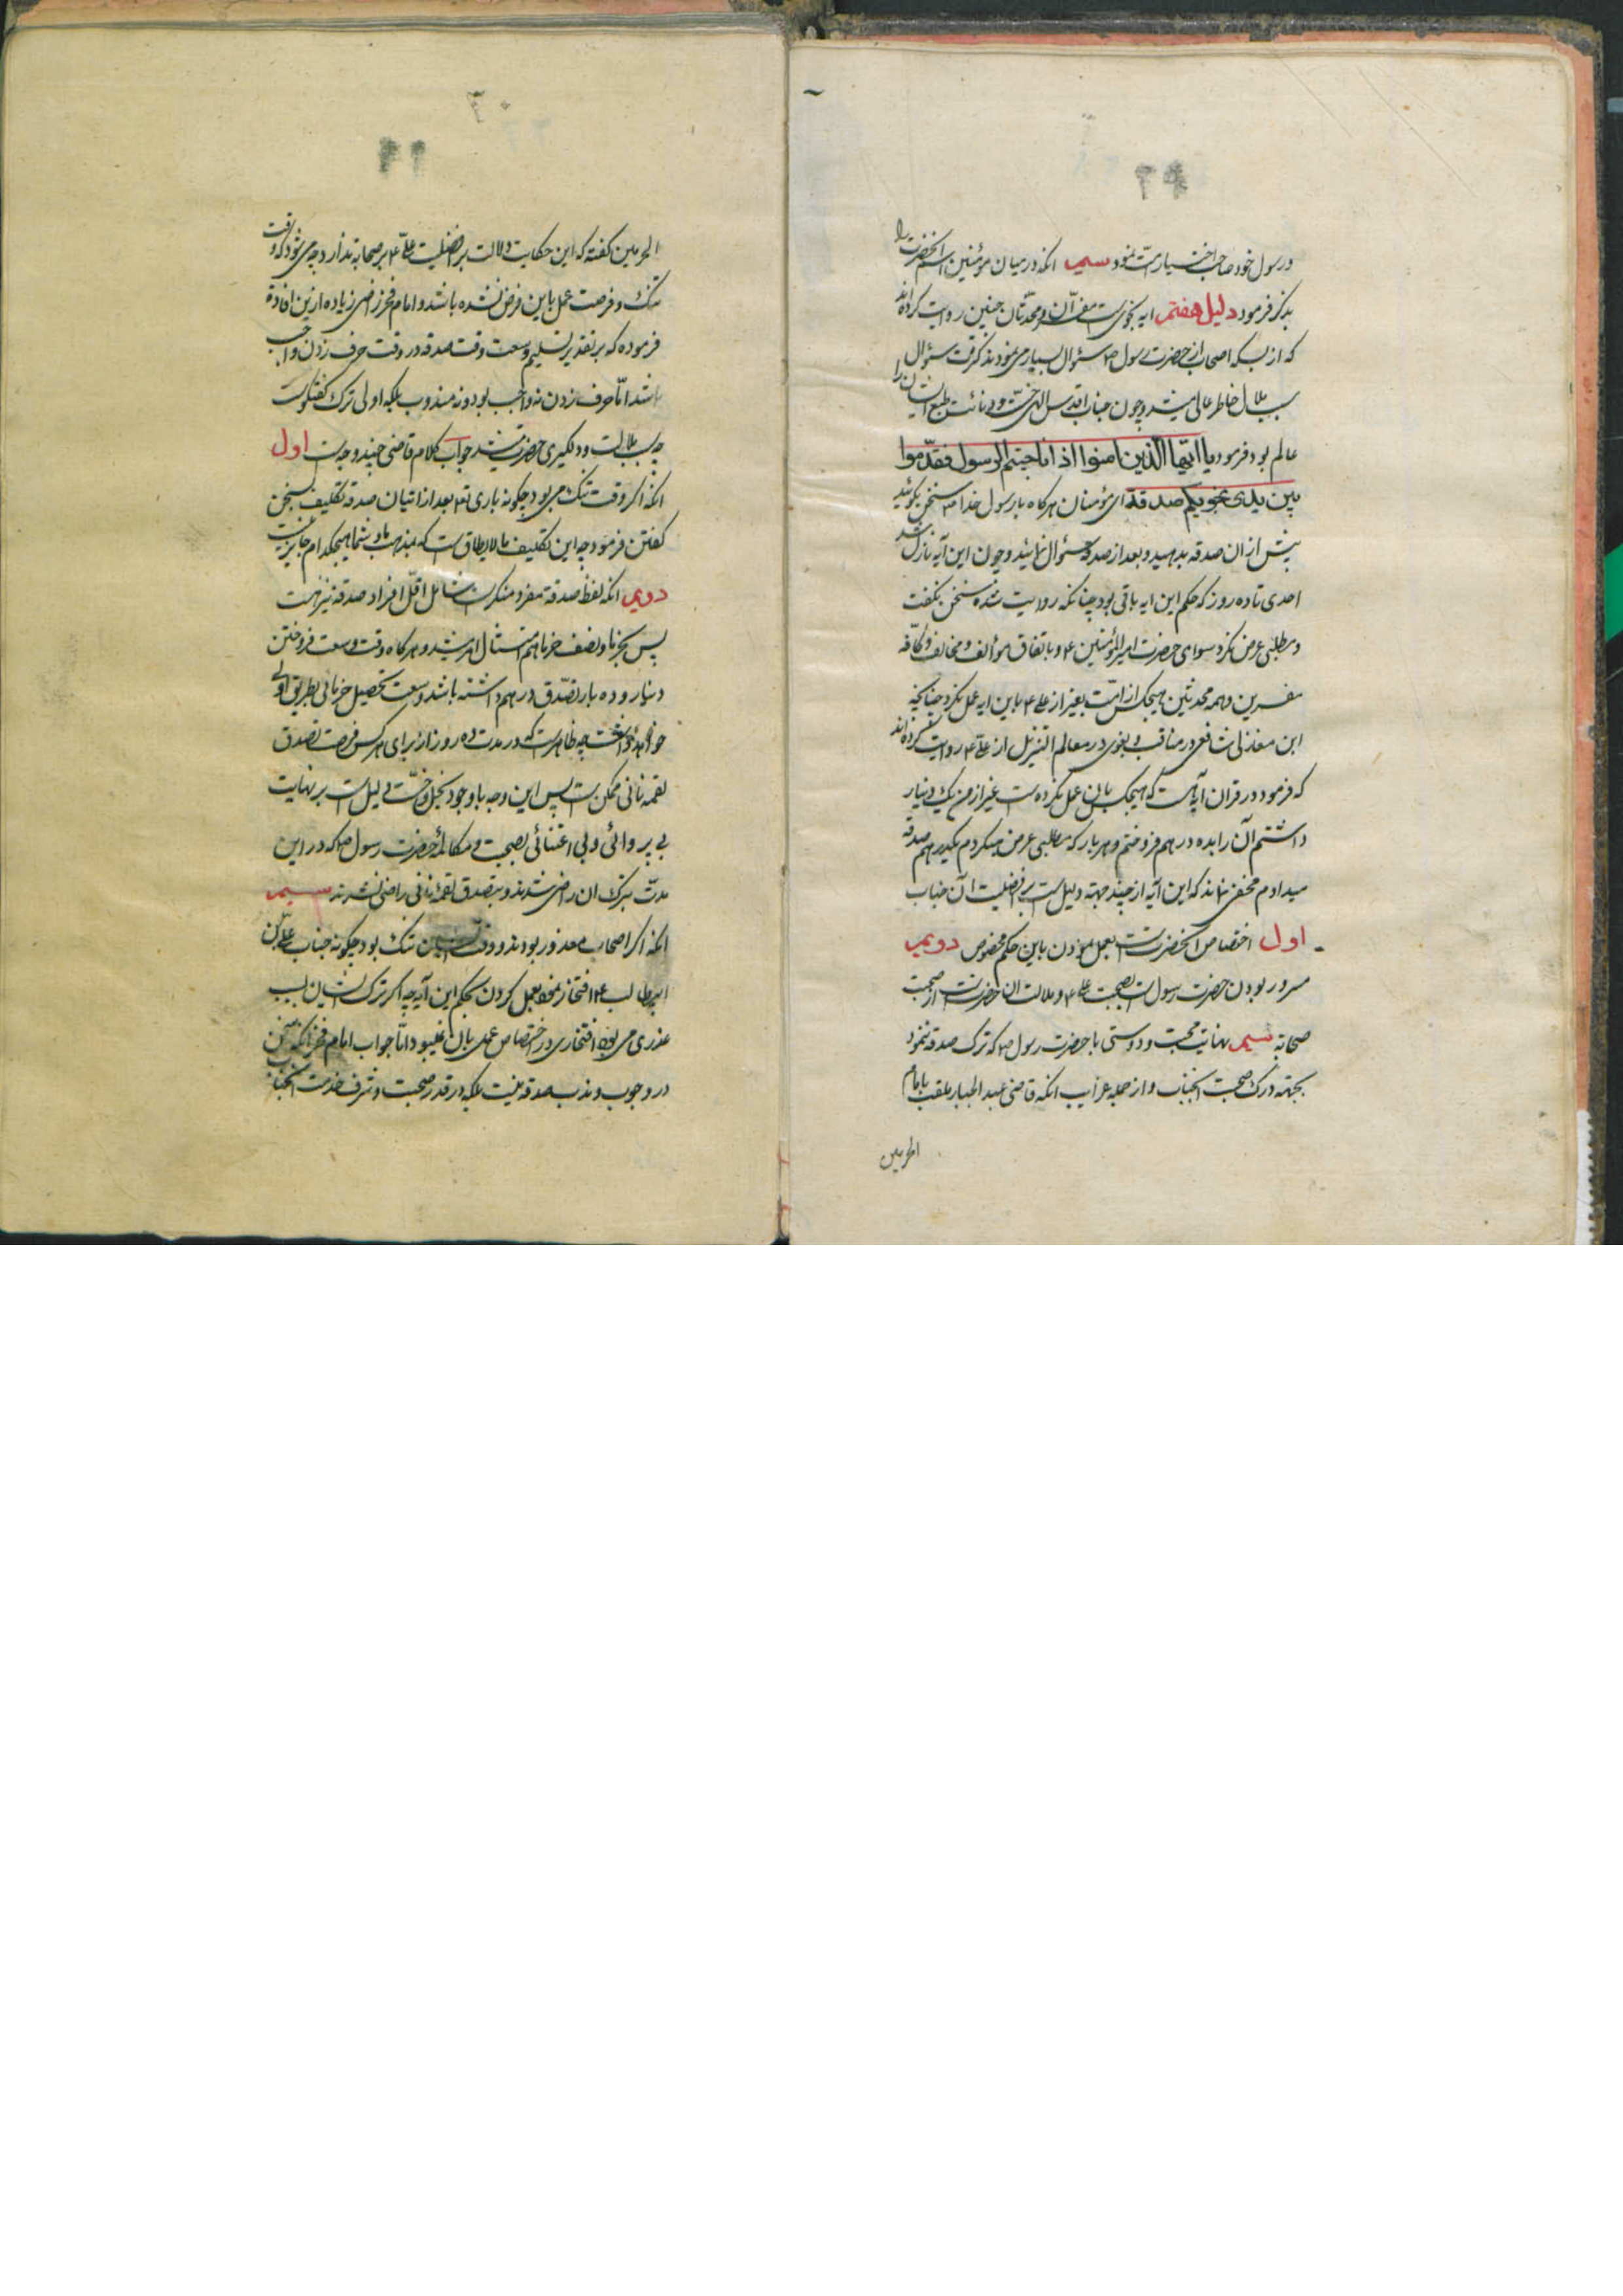 ورسول خود صاحب اختیار امت نمود سیم انکه در میان مؤمنین اسم انحضرت را
بذکر فرمود دلیل هفتم ایه نجوی است مفسران ومحدثان چنین روایت کرده اند
که از بسکه اصحاب از حضرت رسول ص سئوال بسیار می نمودند کثرت سئوال
سبب ملال خاطر عالی میشد وچون جناب اقدس الهی خست ودنائت طبع ایشان را
عالم بود فرمود یا ایها الذین امنوا اذا ناجیتم الرسول فقدموا
بین یدی نجویکم صدقة ای مؤمنان هرکاه با رسول خدا ص سخن بکوئید
پیش از ان صدقه بدهید وبعد از صدقه سئوال نمائید وچون این آیه نازل شد
احدی تا ده روز که حکم این ایه باقی بود چنانکه روایت شده سخن نکفت
ومطلبی عرض نکرد سوای حضرت امیر المؤمنین ۴ وباتفاق مؤالف ومخالف وکافه
مفسرین وهمه محدثین هیچکس از امت بغیر از علی ۴ باین ایه عمل نکرد چنانچه
ابن مغازلی شافعی در مناقب وبغوی در معالم التنزیل از علی ۴ روایت کرده اند
که فرمود در قران ایه هست که هیچکس بان عمل نکرده است غیر از من یک دینار
داشتم آن را بده درهم فروختم وهر بار که مطلبی عرض میکردم یکدرهم صدقه
میدادم مخفی نماند که این آیه از چند جهة دلیل است بر افضلیت آن جناب
اول اختصاص انحضرتست بعمل نمودن باین حکم مخصوص دویم
مسرور بودن حضرت رسول است بصحبت علی ۴ وملالت ان حضرتست از صحبت
صحابه سیم نهایت محبت ودوستی با حضرت رسول ص که ترک صدقه ننمود
بجهة درک صحبت انجناب واز جمله غرایب انکه قاضی عبد الجبار ملقب بامام
الحرمین
الحرمین کفته که این حکایت دلالت بر افضلیت علی ۴ بر صحابه ندارد چه می شود که وقت
تنک وفرصت عمل باین فرض نشده باشد وامام فخر رازی زیاده از این افاده
فرموده که بر تقدیر تسلیم وسعت وقت صدقه در وقت حرف زدن واجب
باشد اما حرف زدن نه واجب بود ونه مندوب بلکه اولی ترک کفتکوست
چه سبب ملالت ودلکیری حضرت میشد جواب کلام قاضی چند وجه است اول
انکه اکر وقت تنک می بود چکونه باری تع بعد از اتیان صدقه تکلیف بسخن
کفتن فرمود چه این تکلیف مالایطاق است که بمذهب ما وشما هیچکدام جایز نیست
دویم انکه لفظ صدقة مفرد منکر است شامل اقل افراد صدقه نیز هست
پس بخرما ونصف خرما هم امتثال امر میشد وهرکاه وقت وسعت فروختن
دینار وده بار تصدق درهم داشته باشد وسعت تحصیل خرمائی بطریق اولی
خواهد داشت چه ظاهر است که در مدت ده روز از برای هر کس فرصت تصدق
لقمه نانی ممکن است پس این وجه با وجود بخل وخست دلیل است بر نهایت
بی پروائی وبی اعتنائی بصحبت ومکالمهٔ حضرت رسول ص که در این
مدت بترک ان راضی شدند وبتصدق لقمه نانی راضی نشدند سیم
انکه اکر اصحاب معذور بودند ووقت ایشان تنک بود چکونه جناب علی بن
ابیطالب ۴ افتخار نمود بعمل کردن بحکم این آیه چه اکر ترک ایشان بسبب
عذری می بود افتخاری در اختصاص عمل بان نمیبود اما جواب امام فخر انکه سخن
در وجوب وندب صدقه نیست بلکه در قدر صحبت وشرف خدمت انجناب